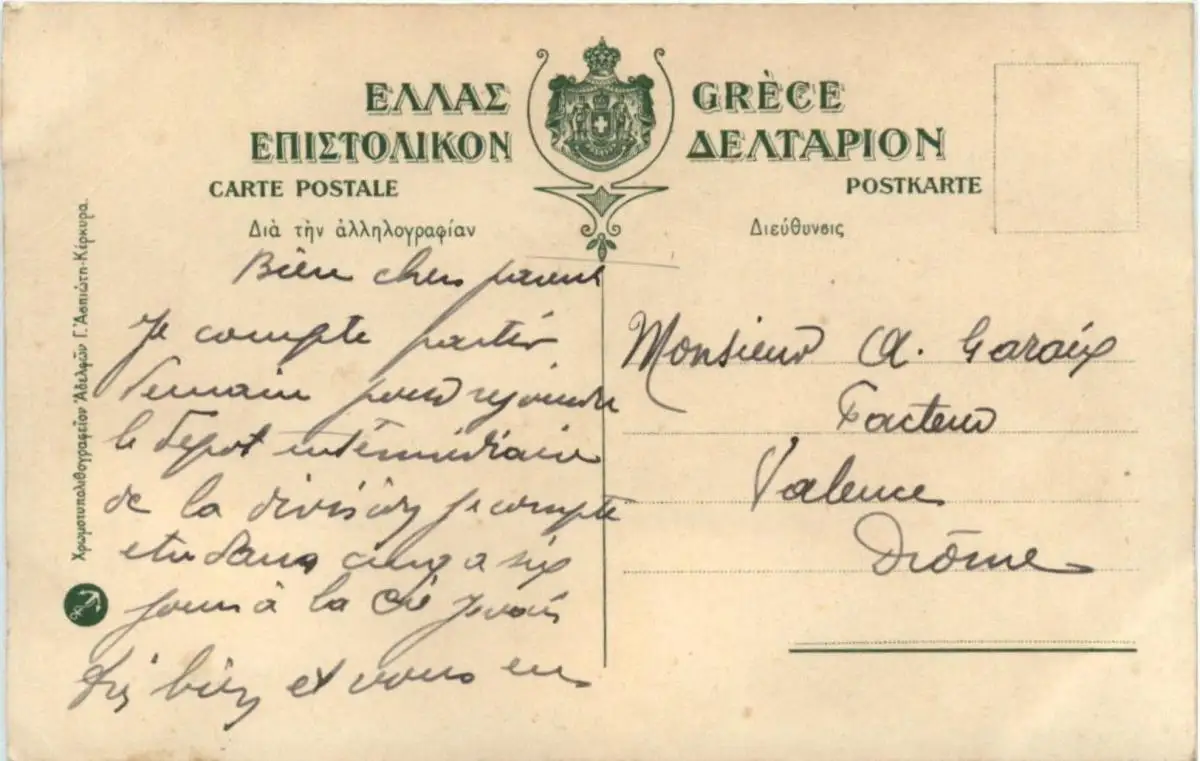 ΕΛΛΑΣ GRÈCE
ΕΠΙΣΤΟΛΙΚΟΝ ΔΕΛΤΑΡΙΟΝ
CARTE POSTALE POSTKARTE
Διὰ τὴν ἀλληλογραφίαν
Διεύθυνσις
Χρωμοτυπολιθογραφεῖον Ἀδελφῶν Γ. Ἀσπιώτη-Κέρκυρα.
Bien chers parents
Je compte partir
demain pour rejoindre
le depot intermédiaire
de la division je compte
etre dans cinq a six
jours à la Cie je vais
très bien et vous en
Monsieur A. Garaix
Facteur
Valence
Drôme